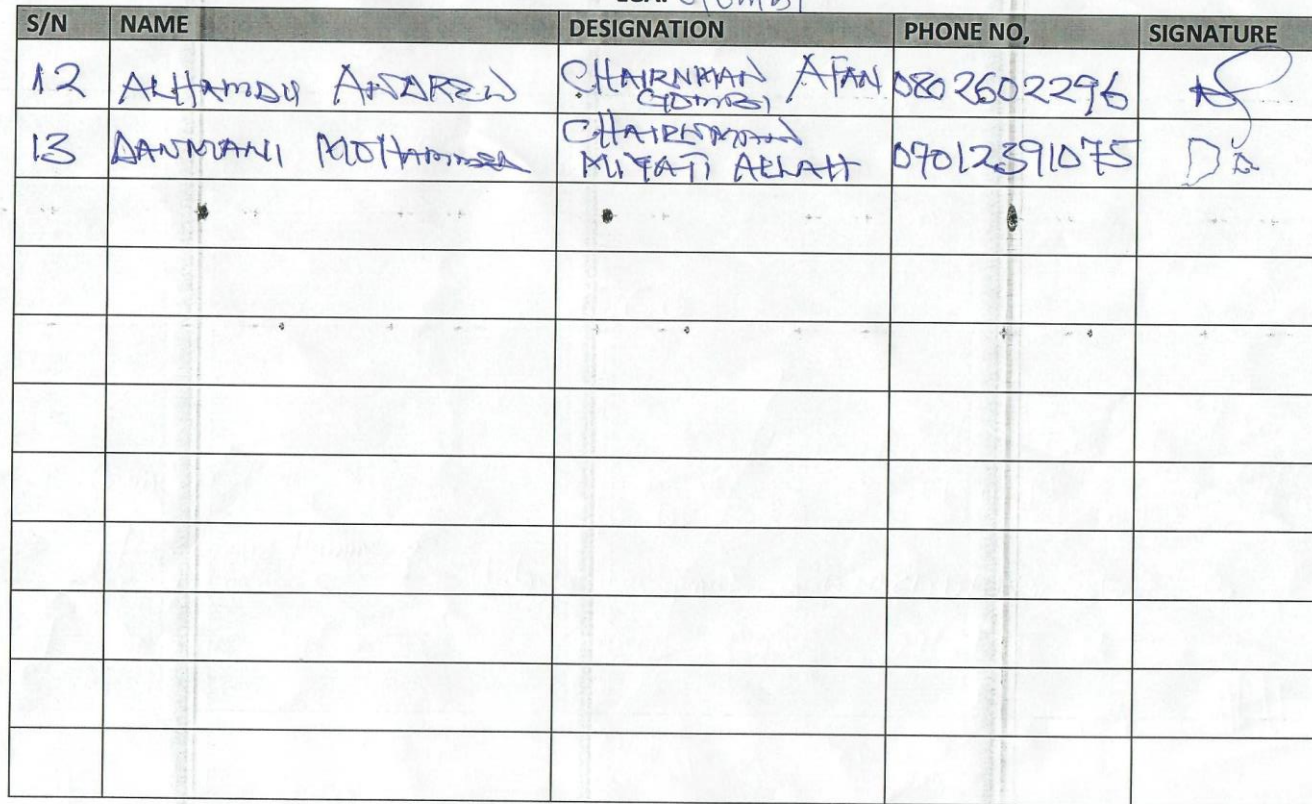 LGA: GOMBI
S/N NAME DESIGNATION PHONE NO, SIGNATURE
12 ALHAMDU ANDREW CHAIRNMAN AFAN GOMBI 0802602296
13 DANMANI MOHAMMED CHAIRNMAN MIYATI ALLAH 07012391075